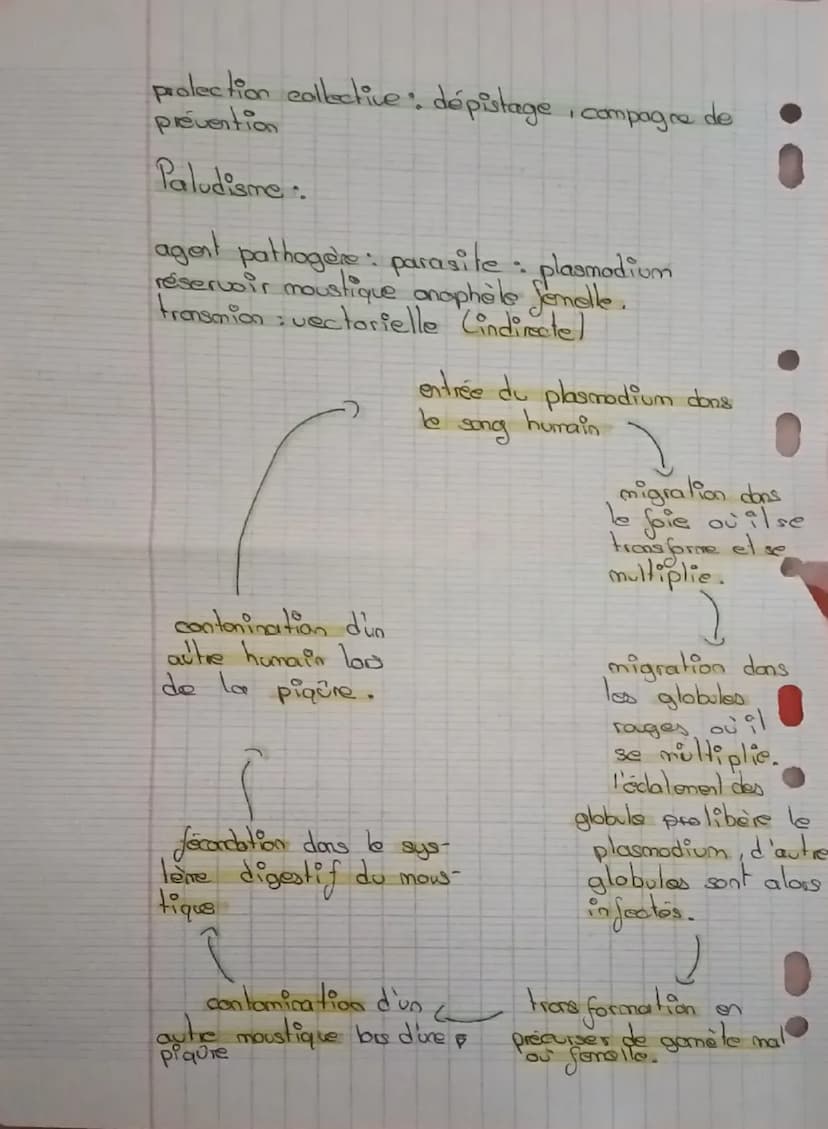 protection collective : dépistage, compagne de
prévention
Paludisme :
agent pathogère : parasite : plasmodium
réservoir moustique anophèle femelle.
transmion : vectorielle (indirecte)
entrée du plasmodium dans
le sang humain
migration dans
le foie où il se
transforme et se
multiplie.
migration dans
les globules
rouges, où il
se multiplie.
l'éclatement des
globule prolibère le
plasmodium, d'autre
globules sont alors
infectés.
transformation en
précurser de gamète mal
ou femelle.
contamination d'un
autre moustique lors d'une p
piqûre
fécondation dans le sys-
tème digestif du mous-
tique
contamination d'un
autre humain lors
de la piqûre.